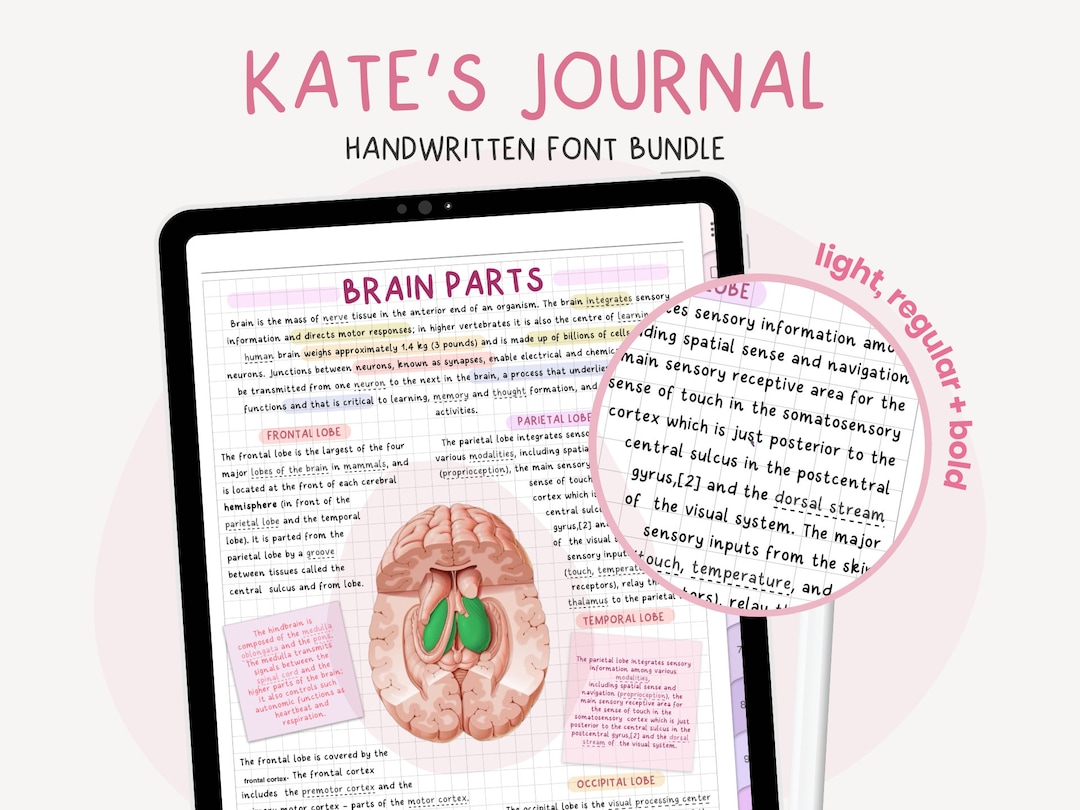 KATE'S JOURNAL
HANDWRITTEN FONT BUNDLE
light, regular + bold
BRAIN PARTS
Brain is the mass of nerve tissue in the anterior end of an organism. The brain integrates sensory
information and directs motor responses; in higher vertebrates it is also the centre of
human brain weighs approximately 1.4 kg (3 pounds) and is made up of billions of cells
neurons. Junctions between neurons, known as synapses, enable electrical and
be transmitted from one neuron to the next in the brain, a process that
functions and that is critical to learning, memory and thought formation, and
activities.
FRONTAL LOBE
The frontal lobe is the largest of the four
major lobes of the brain in mammals, and
is located at the front of each cerebral
hemisphere (in front of the
parietal lobe and the temporal
lobe). It is parted from the
parietal lobe by a groove
between tissues called the
central sulcus and from lobe.
The hindbrain is
composed of the medulla
oblongata and the pons.
The medulla transmits
signals between the
spinal cord and the
higher parts of the brain;
it also controls such
autonomic functions as
heartbeat and
respiration.
The frontal lobe is covered by the
frontal cortex. The frontal cortex
includes the premotor cortex and the
motor cortex - parts of the motor cortex.
PARIETAL LOBE
The parietal lobe integrates
various modalities, including
(proprioception), the main sensory
sense of touch in
cortex which is
central
gyrus,[2] and
of the visual
sensory
(touch,
receptors), relay
thalamus to the parietal
TEMPORAL LOBE
The parietal lobe integrates sensory
information among various
modalities,
including spatial sense and
navigation (proprioception), the
main sensory receptive area for
the sense of touch in the
somatosensory cortex which is just
posterior to the central sulcus in the
postcentral gyrus,[2] and the dorsal
stream of the visual system.
OCCIPITAL LOBE
The occipital lobe is the visual processing center
LOBE
sensory information
spatial sense and navigation
main sensory receptive area for the
sense of touch in the somatosensory
cortex which is just posterior to the
central sulcus in the postcentral
gyrus,[2] and the dorsal stream
of the visual system. The major
sensory inputs from the skin
touch, temperature, and
relay
7
8
9